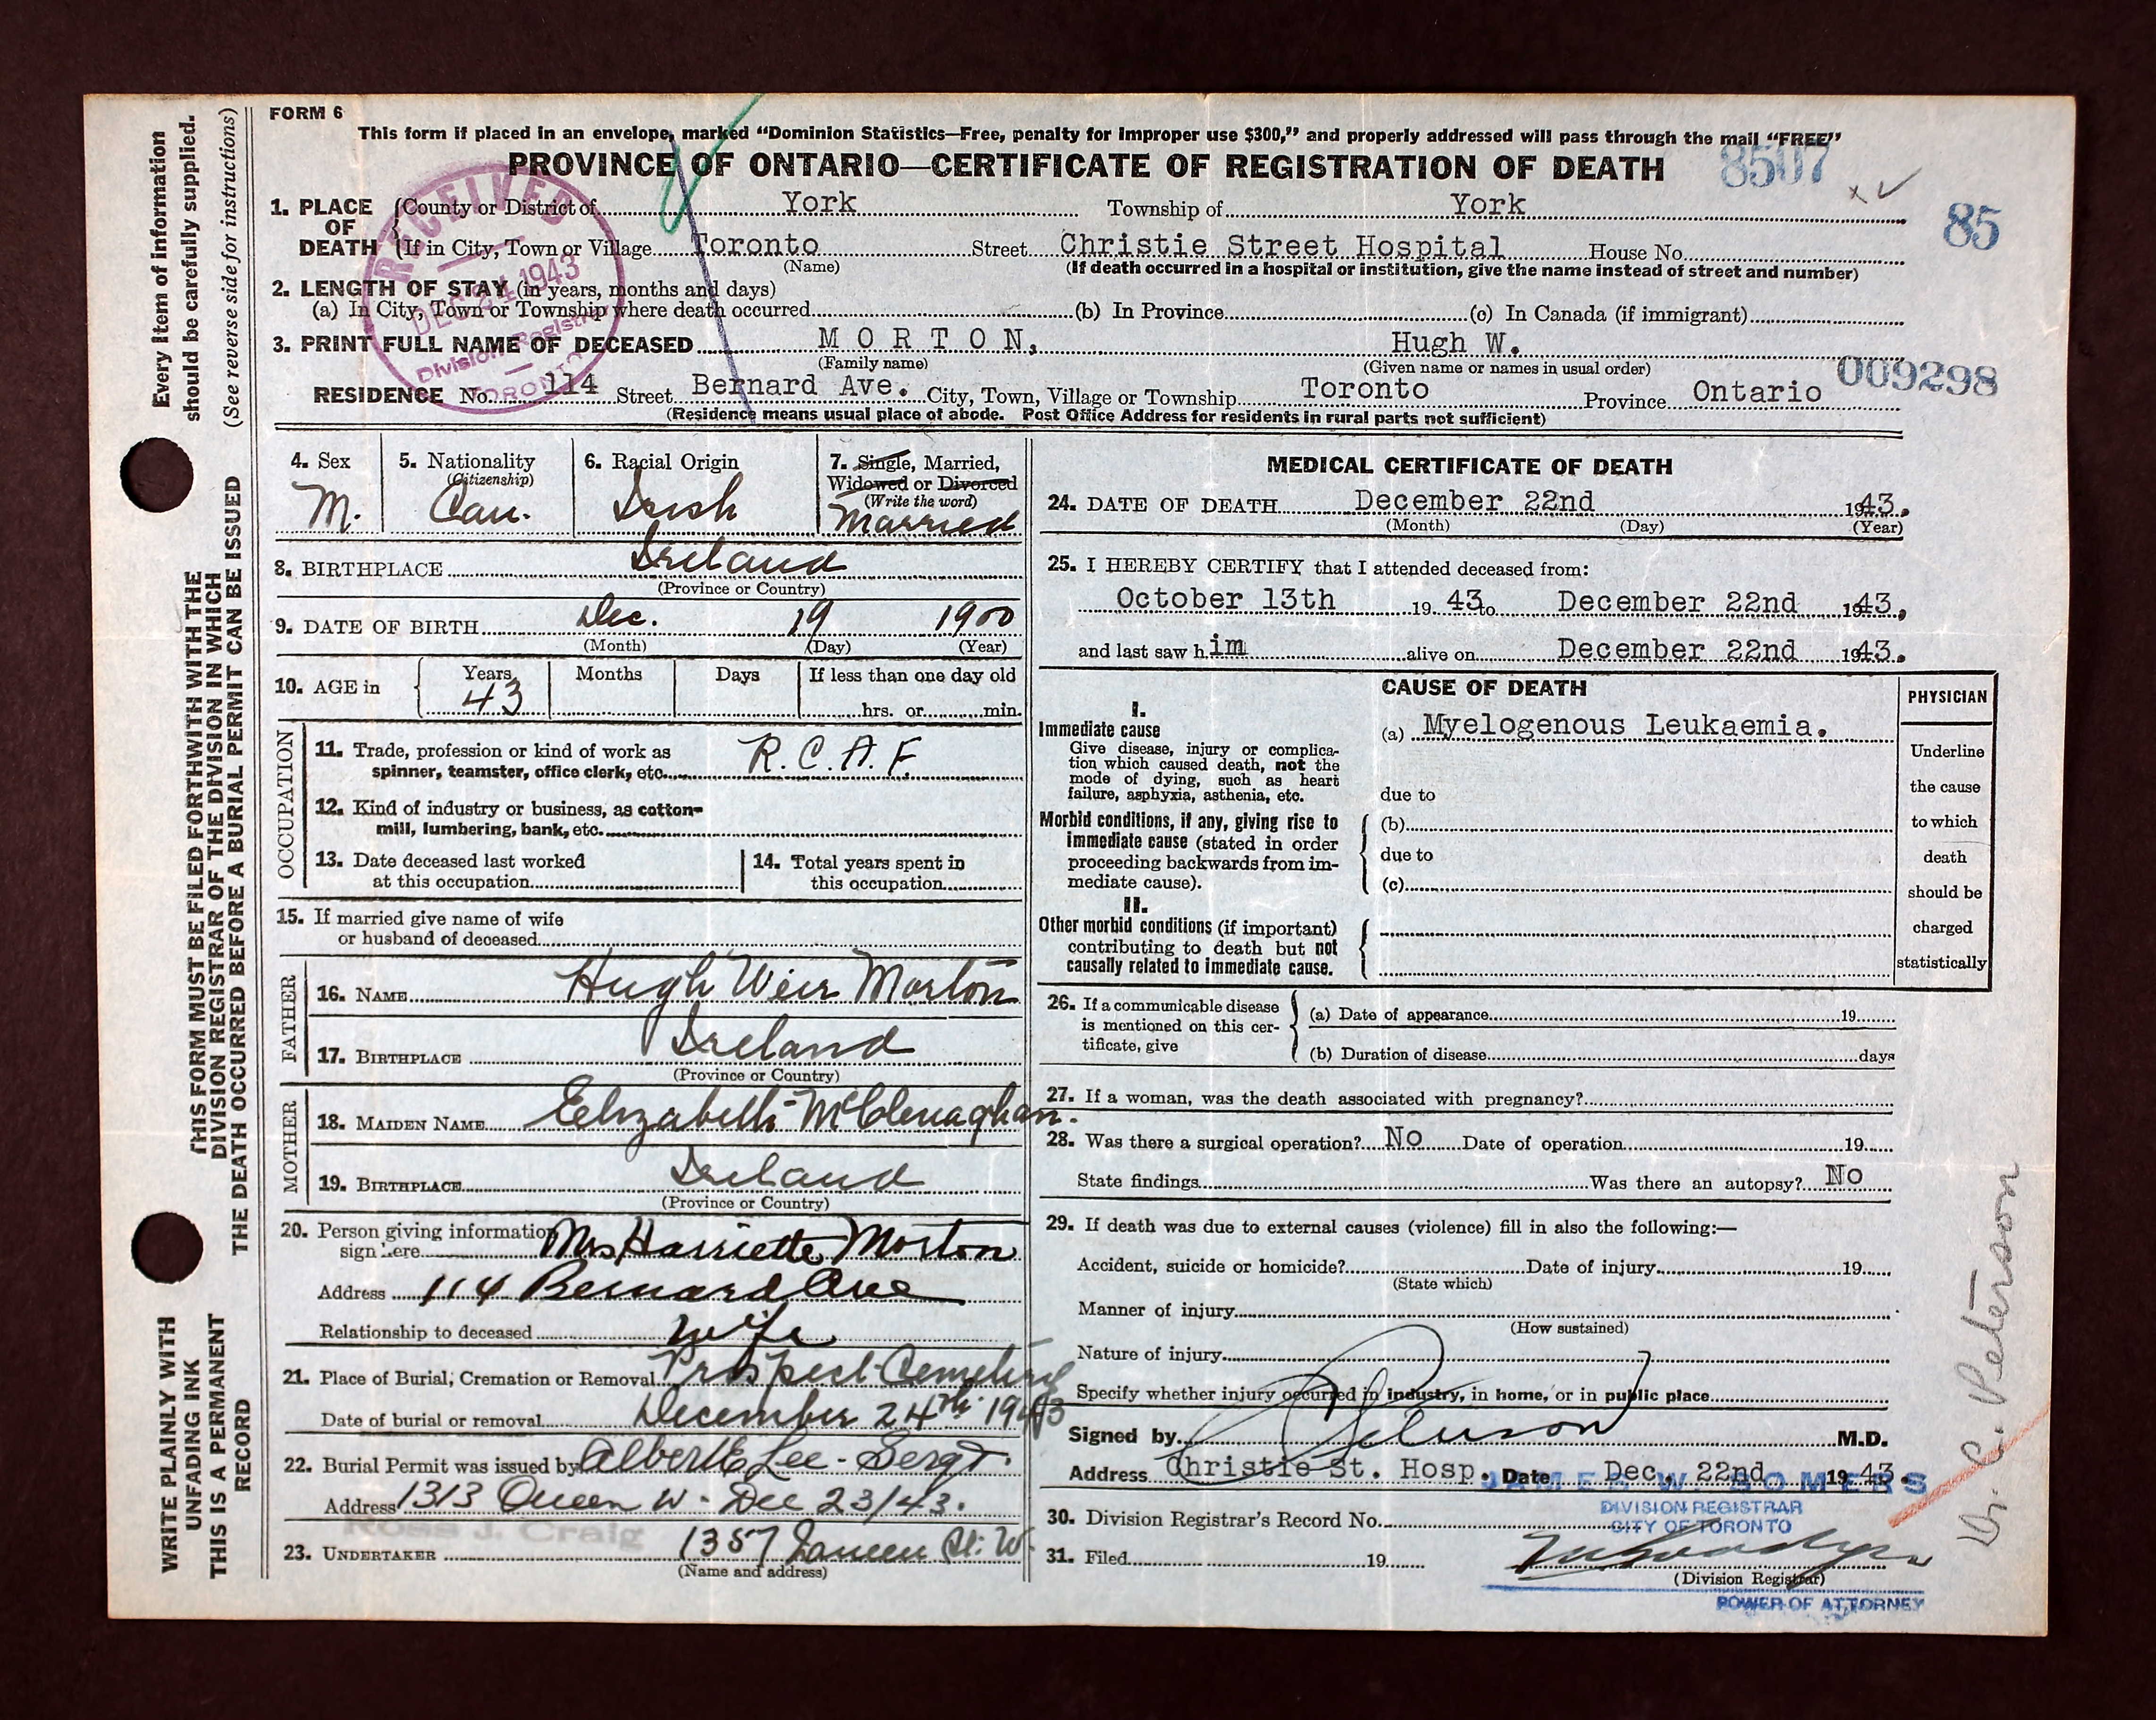 FORM 6
This form if placed in an envelope, marked "Dominion Statistics—Free, penalty for improper use $300," and properly addressed will pass through the mail "FREE"
PROVINCE OF ONTARIO—CERTIFICATE OF REGISTRATION OF DEATH 8507
85
RECEIVED
DEC 24 1943
Division Registrar
TORONTO
1. PLACE OF DEATH { County or District of York Township of York
If in City, Town or Village Toronto Street Christie Street Hospital House No.
(Name) (If death occurred in a hospital or institution, give the name instead of street and number)
2. LENGTH OF STAY (in years, months and days)
(a) In City, Town or Township where death occurred (b) In Province (c) In Canada (if immigrant)
3. PRINT FULL NAME OF DECEASED MORTON, Hugh W.
(Family name) (Given name or names in usual order)
009298
RESIDENCE No. 114 Street Bernard Ave. City, Town, Village or Township Toronto Province Ontario
(Residence means usual place of abode. Post Office Address for residents in rural parts not sufficient)
4. Sex M.
5. Nationality (Citizenship) Can.
6. Racial Origin Irish
7. Single, Married, Widowed or Divorced (Write the word) Married
8. BIRTHPLACE Ireland
(Province or Country)
9. DATE OF BIRTH Dec. 19 1900
(Month) (Day) (Year)
10. AGE in { Years 43 Months Days If less than one day old
hrs. or min.
OCCUPATION
11. Trade, profession or kind of work as
spinner, teamster, office clerk, etc. R.C.A.F.
12. Kind of industry or business, as cotton-
mill, lumbering, bank, etc.
13. Date deceased last worked
at this occupation
14. Total years spent in
this occupation
15. If married give name of wife
or husband of deceased
FATHER
16. NAME Hugh Weir Morton
17. BIRTHPLACE Ireland
(Province or Country)
MOTHER
18. MAIDEN NAME Elizabeth McClenaghan.
19. BIRTHPLACE Ireland
(Province or Country)
20. Person giving information
sign here Mrs Harriette Morton
Address 114 Bernard Ave
Relationship to deceased wife
21. Place of Burial, Cremation or Removal Prospect Cemetery
Date of burial or removal December 24th 1943
22. Burial Permit was issued by Albert E Lee - Sergt.
Address 1313 Queen W - Dec 23/43.
Ross J. Craig
23. UNDERTAKER 1357 Queen St. W.
(Name and address)
MEDICAL CERTIFICATE OF DEATH
24. DATE OF DEATH December 22nd 1943.
(Month) (Day) (Year)
25. I HEREBY CERTIFY that I attended deceased from:
October 13th 19 43 to December 22nd 1943,
and last saw him alive on December 22nd 1943.
CAUSE OF DEATH
I.
Immediate cause
Give disease, injury or complica-
tion which caused death, not the
mode of dying, such as heart
failure, asphyxia, asthenia, etc.
(a) Myelogenous Leukaemia.
due to
Morbid conditions, if any, giving rise to
immediate cause (stated in order
proceeding backwards from im-
mediate cause).
(b)
due to
(c)
II.
Other morbid conditions (if important)
contributing to death but not
causally related to immediate cause.
PHYSICIAN
Underline
the cause
to which
death
should be
charged
statistically
26. If a communicable disease
is mentioned on this cer-
tificate, give
(a) Date of appearance 19
(b) Duration of disease days
27. If a woman, was the death associated with pregnancy?
28. Was there a surgical operation? No Date of operation 19
State findings Was there an autopsy? No
29. If death was due to external causes (violence) fill in also the following:—
Accident, suicide or homicide? Date of injury 19
(State which)
Manner of injury
(How sustained)
Nature of injury
Specify whether injury occurred in industry, in home, or in public place
Signed by M.D.
Address Christie St. Hosp. Date Dec. 22nd 1943.
JAMES W. SOMERS
DIVISION REGISTRAR
CITY OF TORONTO
30. Division Registrar's Record No.
31. Filed 19
(Division Registrar)
POWER OF ATTORNEY
Dr. C. Peterson
Every item of information
should be carefully supplied.
(See reverse side for instructions)
THIS FORM MUST BE FILED FORTHWITH WITH THE
DIVISION REGISTRAR OF THE DIVISION IN WHICH
THE DEATH OCCURRED BEFORE A BURIAL PERMIT CAN BE ISSUED
WRITE PLAINLY WITH
UNFADING INK
THIS IS A PERMANENT
RECORD